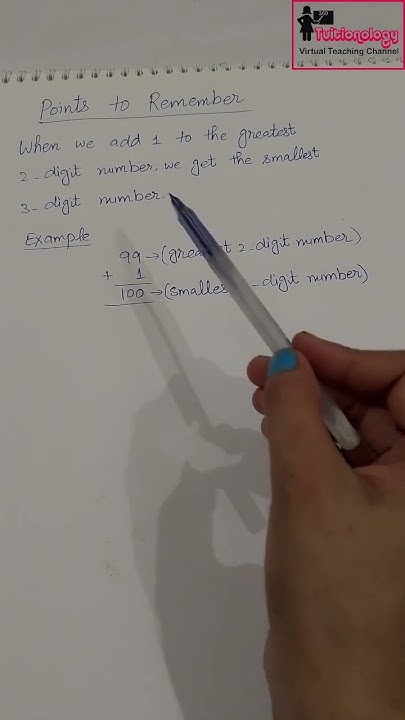 Tuitionology
Virtual Teaching Channel
Points to Remember
When we add 1 to the greatest
2-digit number, we get the smallest
3-digit number.
Example
99 → ( 2-digit number)
+ 1
100 → ( -digit number)